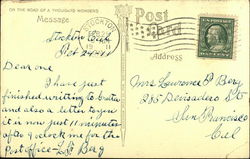 ON THE ROAD OF A THOUSAND WONDERS
Message
Post
Card
Address
STOCKTON
19 11
Stockton Calif
Oct 24-11
Dear one
I have just
finished writing to
and also a letter to you
it is now just 11 minutes
after 9 o'clock me for the
Post office - L.P. Berg
Mrs Lawrence P. Berg
Devisadero St
San Francisco
Cal